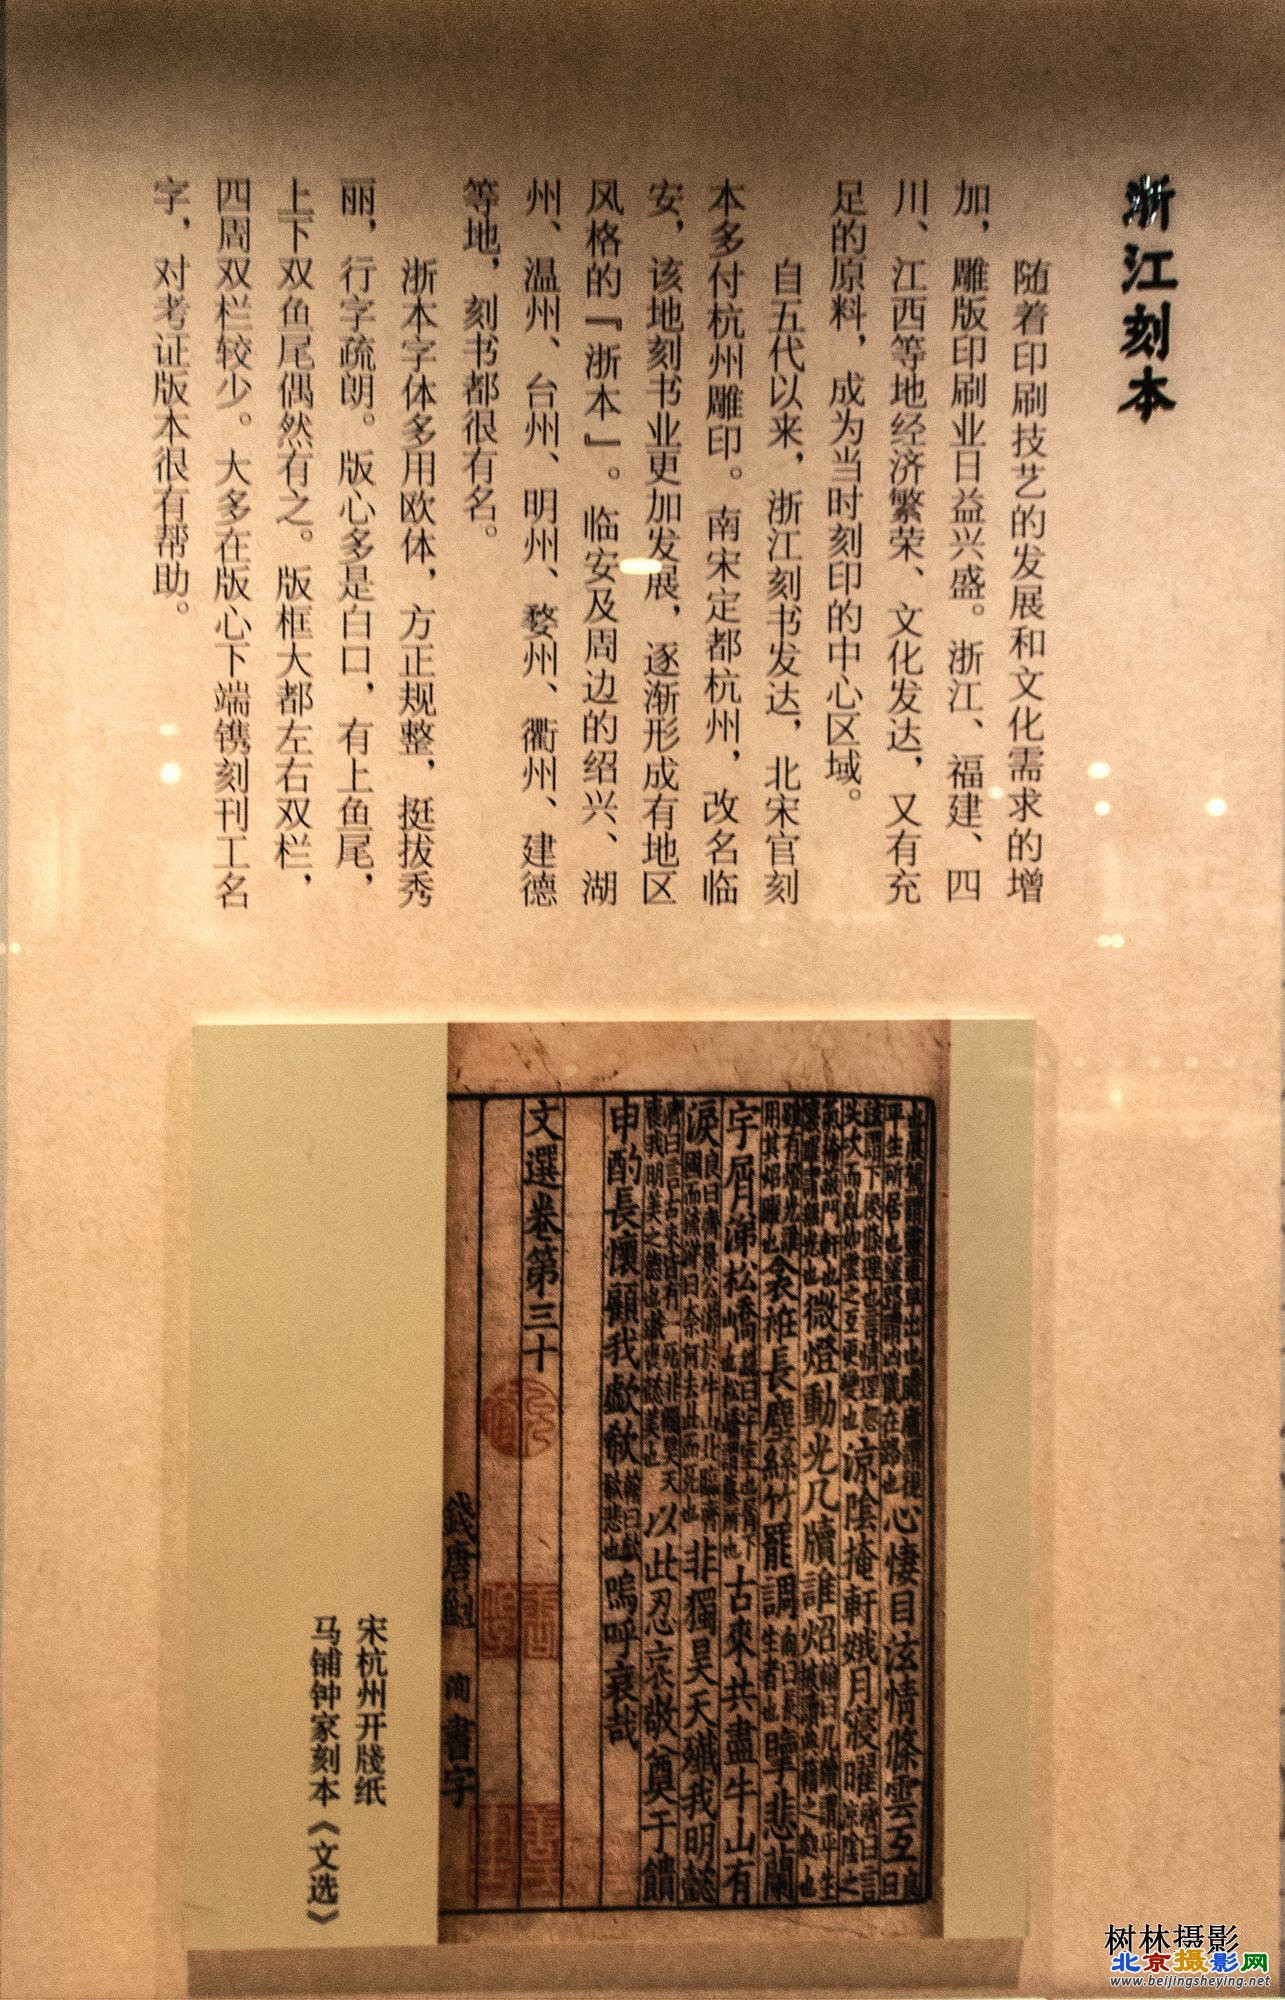 浙江刻本
随着印刷技艺的发展和文化需求的增
加，雕版印刷业日益兴盛。浙江、福建、四
川、江西等地经济繁荣、文化发达，又有充
足的原料，成为当时刻印的中心区域。
自五代以来，浙江刻书发达，北宋官刻
本多付杭州雕印。南宋定都杭州，改名临
安，该地刻书业更加发展，逐渐形成有地区
风格的『浙本』。临安及周边的绍兴、湖
州、温州、台州、明州、婺州、衢州、建德
等地，刻书都很有名。
浙本字体多用欧体，方正规整，挺拔秀
丽，行字疏朗。版心多是白口，有上鱼尾，
上下双鱼尾偶然有之。版框大都左右双栏，
四周双栏较少。大多在版心下端镌刻刊工名
字，对考证版本很有帮助。
心悽目泫情條雲互
涼陰掩軒娥月寢曜
微燈動光几牘誰炤
衾袵長塵絲竹罷調
擥悲蘭
宇屑涕松嶠
古來共盡牛山有
淚
非獨昊天殲我明懿
以此忍哀敬奠于饋
申酌長懷顧我歔欷
嗚呼哀哉
文選卷第三十
錢唐鮑洵書字
宋杭州开牋纸
马铺钟家刻本《文选》
树林摄影
北京摄影网
www.beijingsheying.net